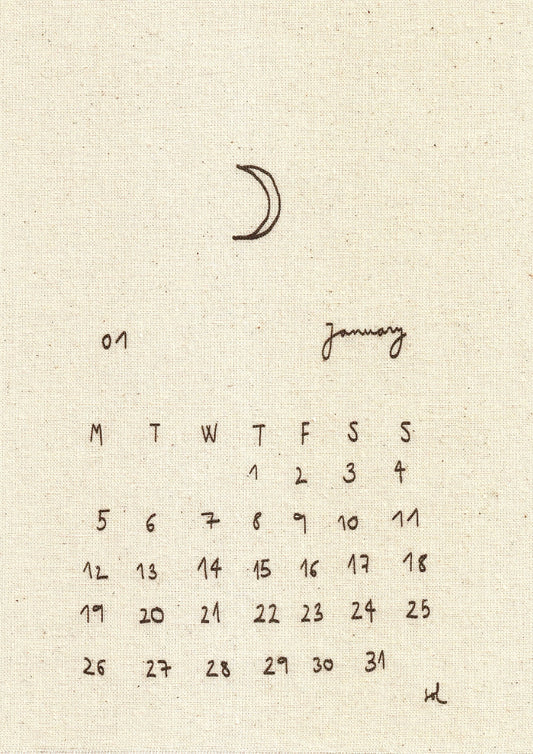 01 January
M T W T F S S
1 2 3 4
5 6 7 8 9 10 11
12 13 14 15 16 17 18
19 20 21 22 23 24 25
26 27 28 29 30 31